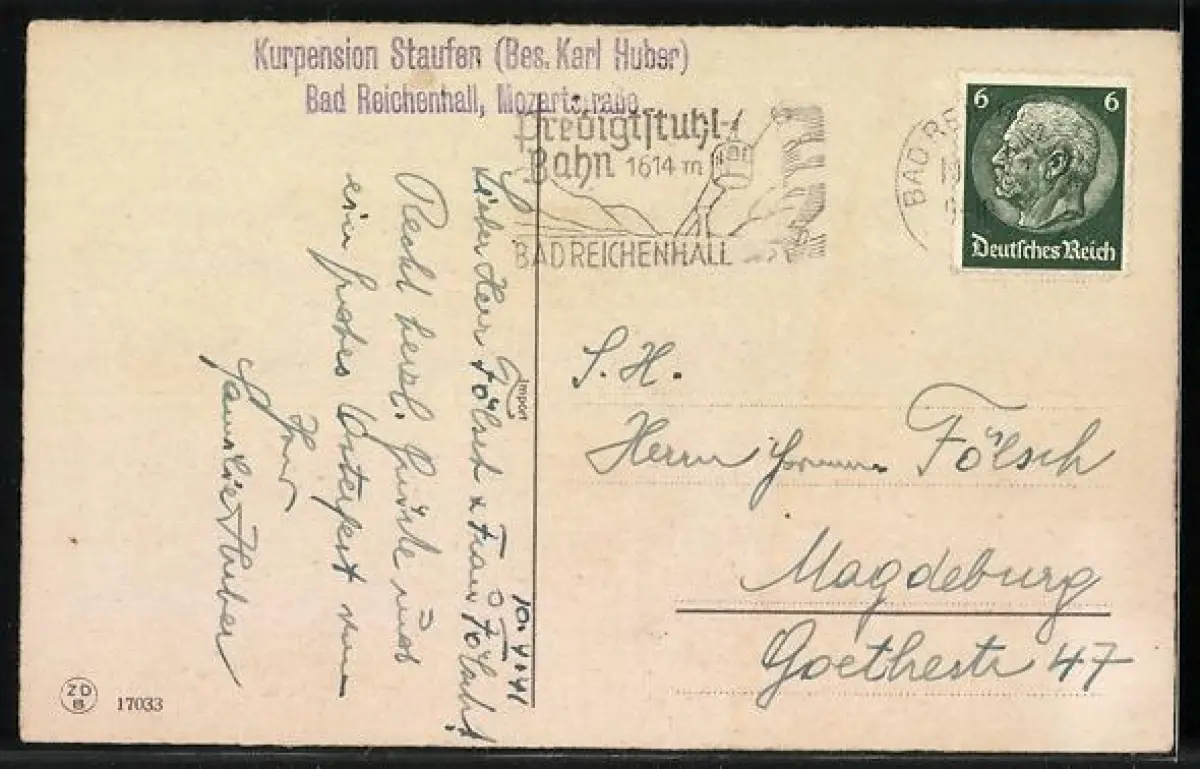 Kurpension Staufen (Bes. Karl Huber)
Bad Reichenhall, Mozartstraße
Predigtstuhl-
Bahn 1614 m
BAD REICHENHALL
BAD RE
6 6
Deutsches Reich
Import
10.4.41
Lieber Herr Fölsch u Frau Fölsch!
Recht herzl. Grüße und
ein frohes Osterfest von
Ihrer
Familie Huber
S. H.
Herrn Fölsch
Magdeburg
Goethestr 47
ZD
B
17033